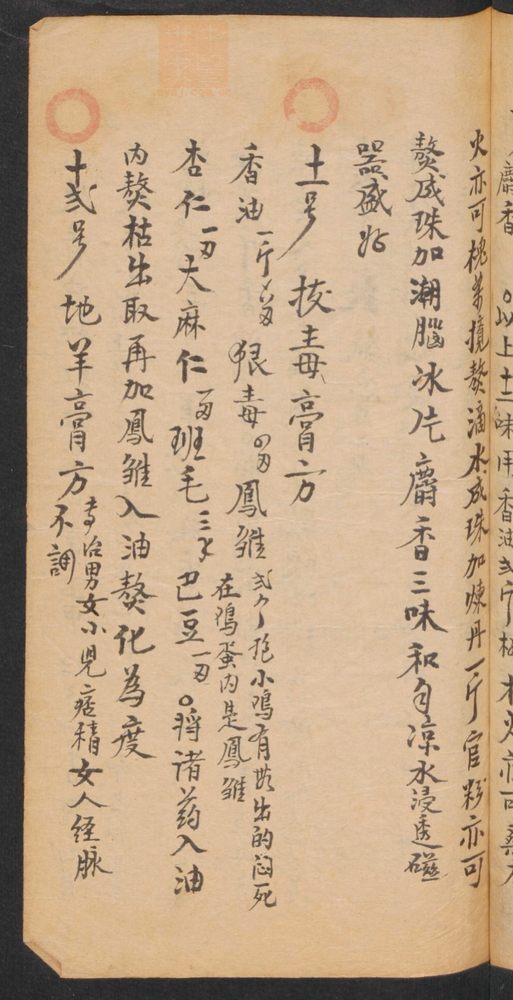 麝香 ○以上十二味用香油弍斤
火亦可槐条攪熬滴水成珠加煉丹一斤官粉亦可
熬成珠加潮腦冰片麝香三味和勻凉水浸透磁
器盛好
十一号 拔毒膏方
香油一斤 狠毒 鳳雏 弍个抱小鴉有苗出的闷死
在鴉蛋内是鳳雏
杏仁一刄大麻仁一刄班毛三个巴豆一刄○將诸药入油
内熬枯出取再加鳳雏入油熬化為度
十弍号 地羊膏方 專治男女小児痞積女人经脉
不調